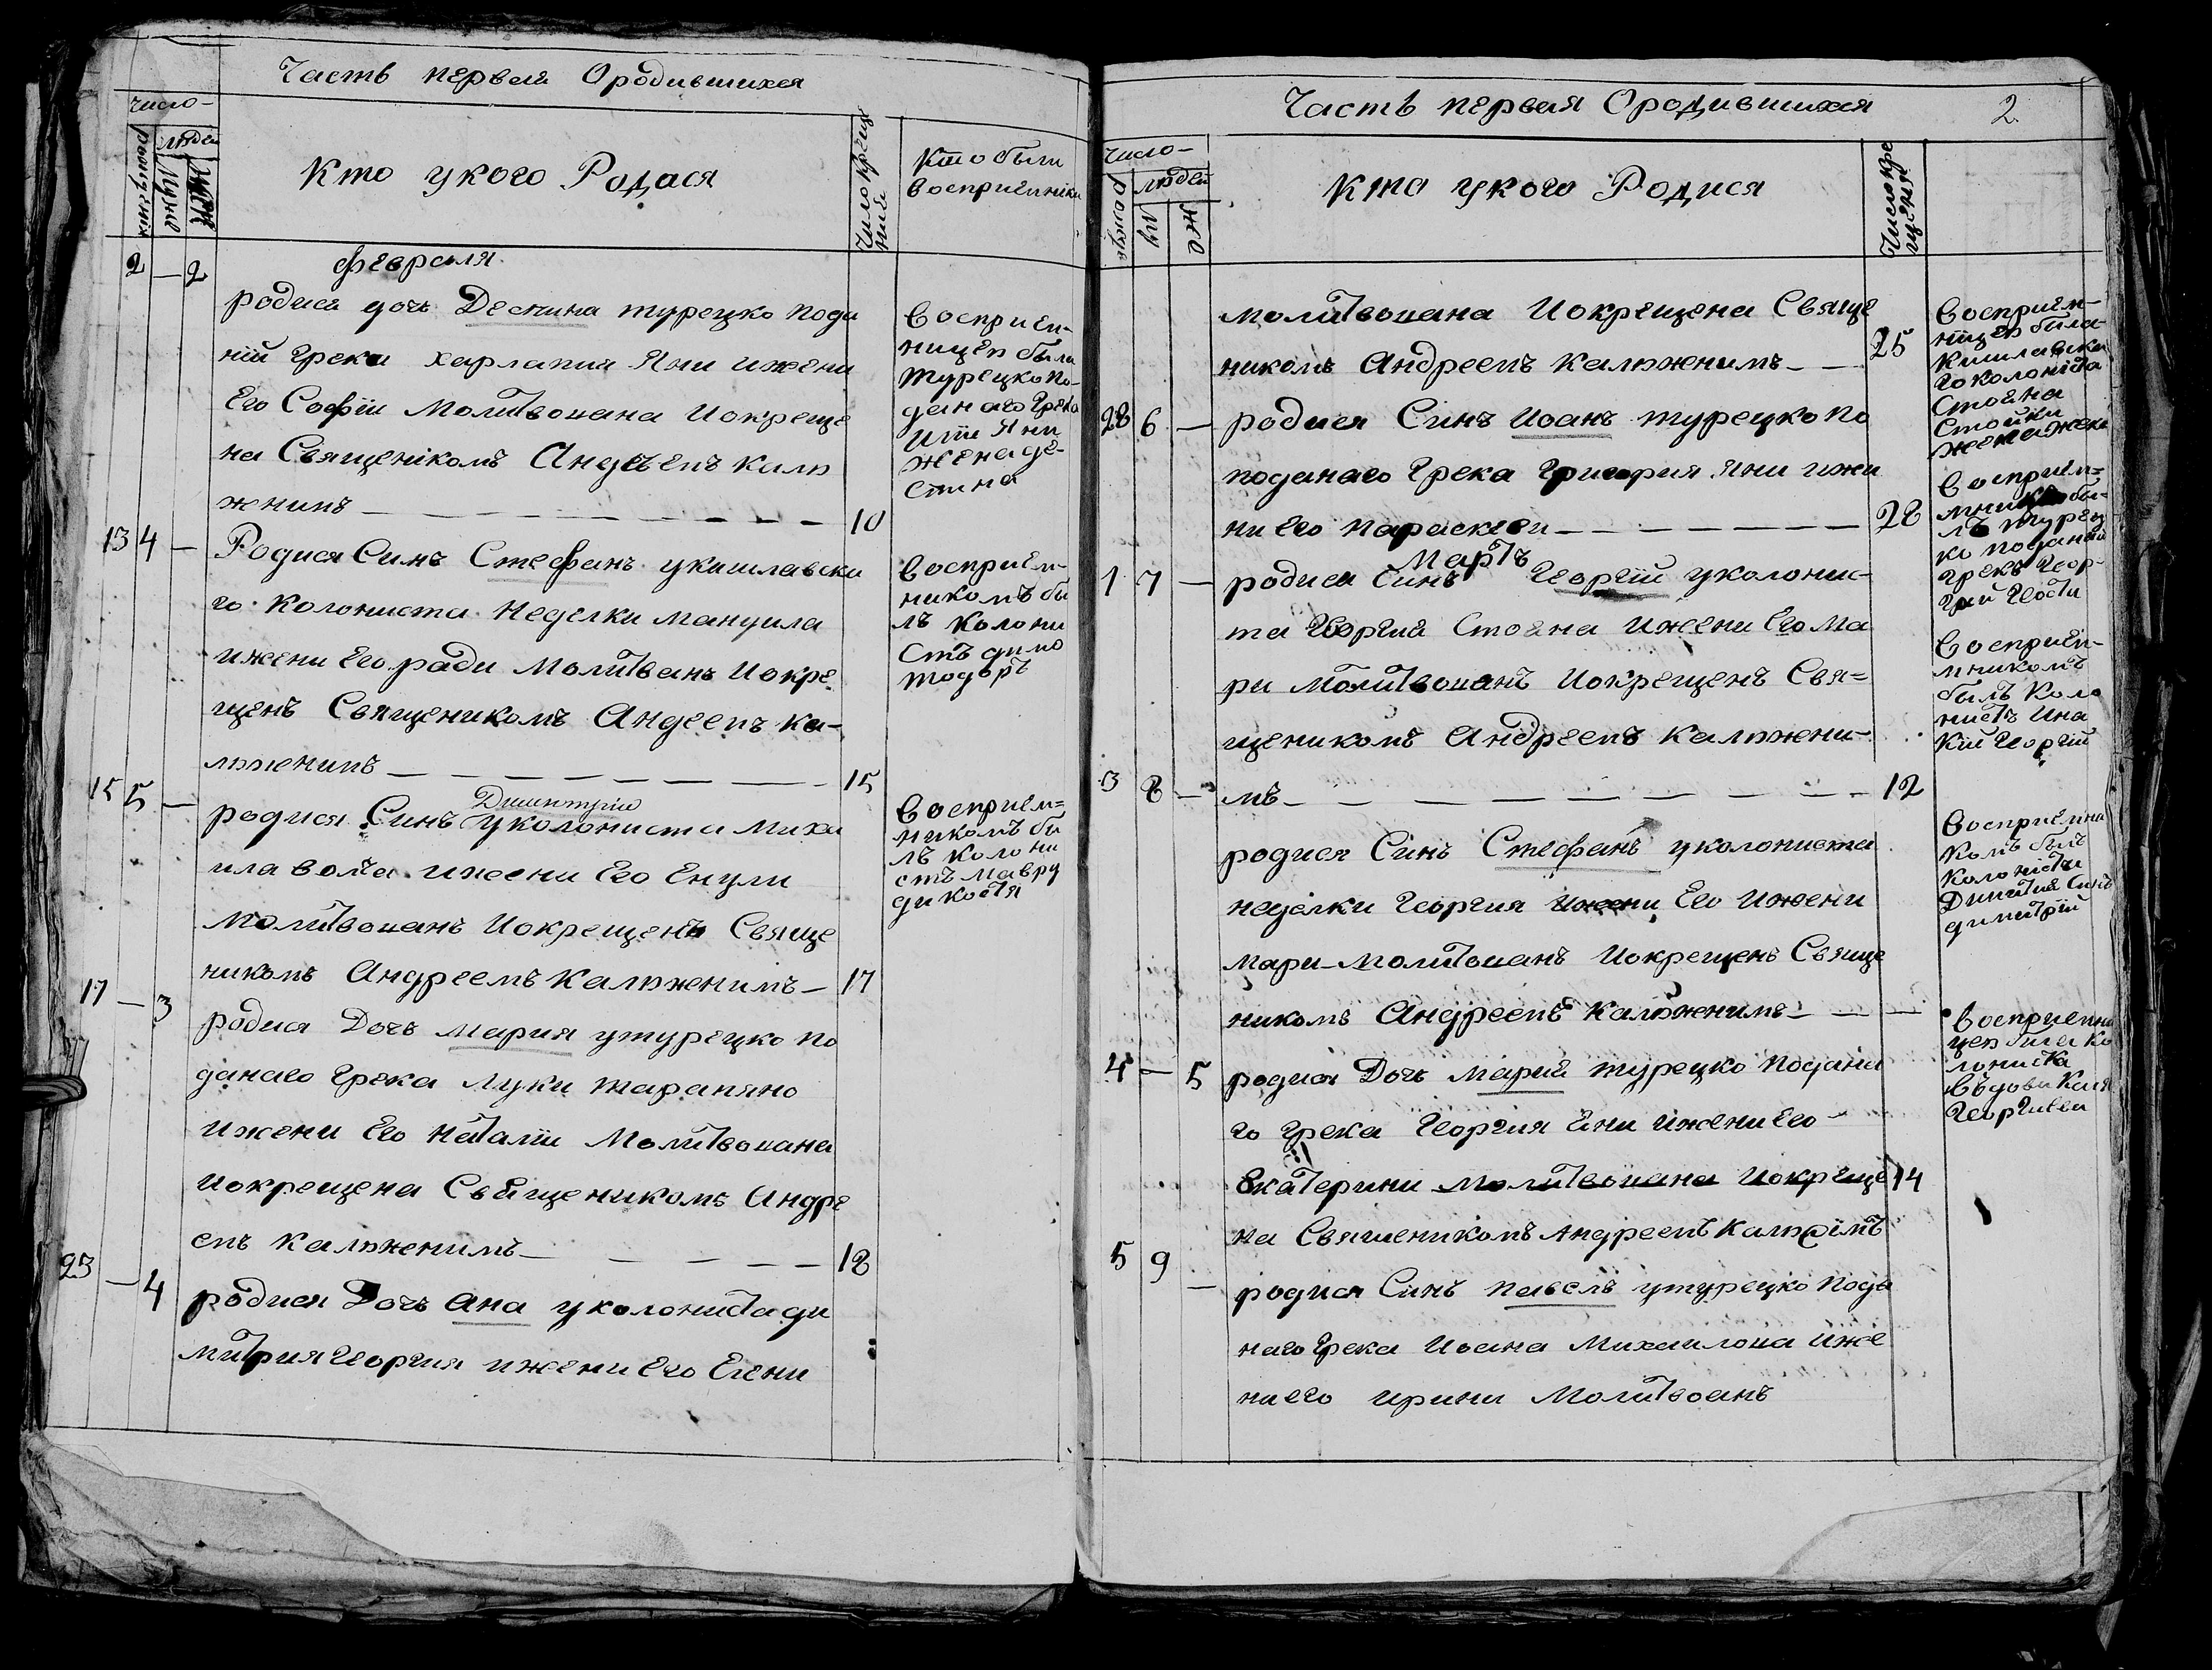 Часть первая Ородившихся
число-
людей
рожденія
Мужес
Кто укого Родася
Число креще
нія
Кто были
восприемники
февраля
2 — 2
родися дочь Деспина турецко пода
ній Грека харлапия Яни ижени
Его Софіи Молитвошана Иокреще
на Священікомъ Андеемъ калю
жнимъ — 10
Восприем-
ницею была
турецко по-
данаго Грека
Яни
жена де-
спина
13 4 —
Родися Синъ Стефанъ укишлавска
го колониста Неделки мануила
ижени Его ради Молитванъ Иокре
щенъ Священикомъ Андеемъ ка-
люженимъ — 15
Восприем-
никомъ би
лъ колони
стъ димо
тодоръ
15 5 —
Димитрію
родися Синъ уколониста миха
ила волча ижени Его Енули
Молитвошанъ Иокрещенъ Свяще
никомъ Андреемъ калюженимъ — 17
Восприем=
никомъ би
лъ колони
стъ мавру
ди костя
17 — 3
родися Дочь Мария утурецко по
данаго Грека Луки тарапяно
ижени Его Наталіи Молитвошана
иокрещена Священикомъ Андре
емъ калюженимъ — 18
23 — 4
родися Дочь Ана уколониста ди
митрия Георгия ижени Его Елени
Часть первая Ородившихся
2
число-
людей
рожде
му
же
Кто укого Родися
Число кре
щения
молитвошана Иокрещена Свяще
никомъ Андреемъ калюженимъ — 25
Восприем-
ницею била
кишлавска
го колоніста
Стояна
Стойки
жена
28 6 —
родися Синъ Иоанъ турецко по
поданаго Грека Григория Яни ижи
ни Его параскеви — 28
Восприем=
би-
лъ турец
ко поданій
грекъ Геор-
гий Кости
Мартъ
1 7 —
родися Синъ Георгій уколонис-
та Георгия Стояна ижени Его Ма
ри Молитвошанъ Иокрещенъ Свя=
щеникомъ Андреемъ калюжени-
мъ — 12
Восприем-
никомъ
билъ коло
нистъ Ина
кій Георгій
3 8 —
родися Синъ Стефанъ уколониста
неделки Георгия ижени Его ижени
Мари Молитвошанъ Иокрещенъ Свяще
никомъ Андреемъ калюженимъ —
Восприемни
комъ билъ
колоніста
Димития Синъ
димитрій
4 — 5
родися Дочь Марий турецко подана
го Грека Георгия Ени ижени Его
Екатерини Молитвошана Иокреще 14
на Свяшеникомъ Андреемъ
Восприемни
цею била ко
лониста
Вдова
Георгиева
5 9 —
родися Синъ павелъ утурецко пода
наго Грека Иоана Михаилова иже
ни его ирини Молитвоанъ